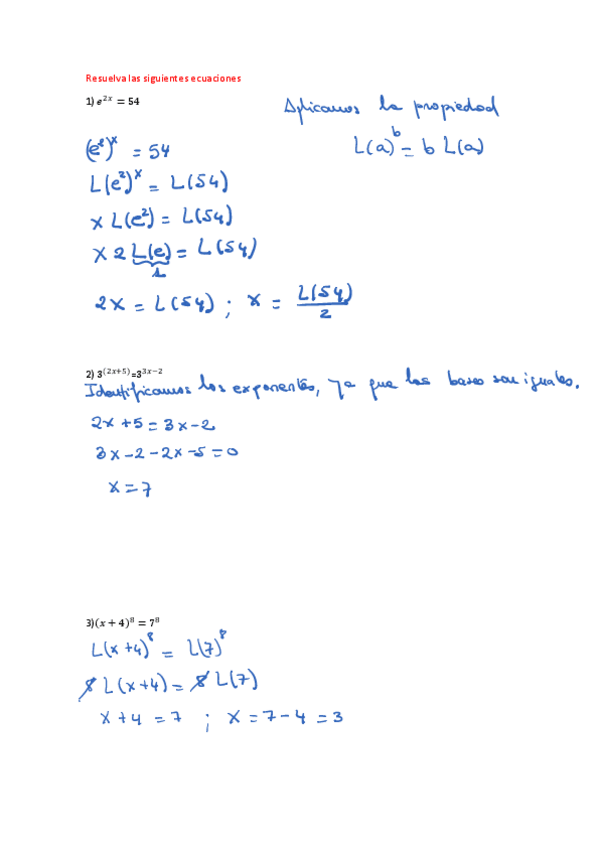 Resuelva las siguientes ecuaciones
1) e^{2x} = 54
Aplicamos la propiedad
(e²)ˣ = 54
L(a)^b = b L(a)
L(e²)ˣ = L(54)
x L(e²) = L(54)
x 2 L(e) = L(54)
1
2x = L(54) ; x = L(54)/2
2) 3^{(2x+5)}=3^{3x−2}
Identificamos los exponentes, ya que las bases son iguales.
2x + 5 = 3x - 2
3x - 2 - 2x - 5 = 0
x = 7
3)(x + 4)⁸ = 7⁸
L(x + 4)⁸ = L(7)⁸
8 L(x+4) = 8 L(7)
x + 4 = 7 ; x = 7 - 4 = 3